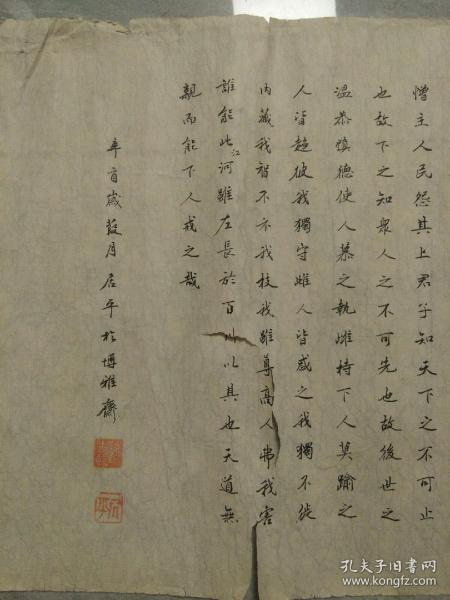 憎主人民怨其上君子知天下之不可止
也故下之知众人之不可先也故後世之
温恭慎德使人慕之執雌持下人莫踰之
人皆趋彼我獨守雌人皆惑之我獨不徙
内藏我智不示我技我雖尊高人弗我害
誰能此江河雖左長於百川以其也天道無
親而能下人戒之哉
辛酉歲葭月居平於博雅齋
居平
孔夫子旧书网
www.kongfz.com